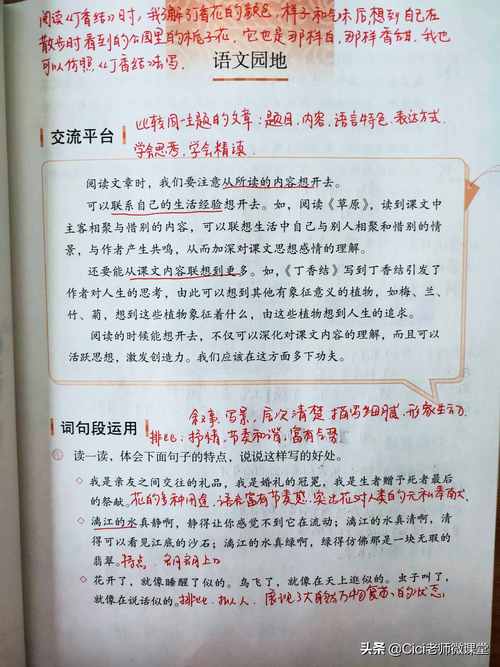 阅读《丁香结》时，我了解了丁香花的颜色，样子和气味后想到自己在
散步时看到的公园里的栀子花，它也是那样白，那样香甜，我也
可以仿照《丁香结》法写。
语文园地
交流平台
比较同一主题的文章：题目、内容、语言特色、表达方式
学会思考，学会精读
阅读文章时，我们要注意从所读的内容想开去。
可以联系自己的生活经验想开去。如，阅读《草原》，读到课文中
主客相聚与惜别的内容，可以联想生活中自己与别人相聚和惜别的情
景，与作者产生共鸣，从而加深对课文思想感情的理解。
还要能从课文内容联想到更多。如，《丁香结》写到丁香结引发了
作者对人生的思考，由此可以想到其他有象征意义的植物，如梅、兰、
竹、菊，想到这些植物象征着什么，由这些植物想到人生的追求。
阅读的时候能想开去，不仅可以深化对课文内容的理解，而且可以
活跃思想，激发创造力。我们应该在这方面多下功夫。
词句段运用
叙事、写景，层次清楚 描写细腻，形象生动
排比：抒情，节奏和谐，富有气势
读一读，体会下面句子的特点，说说这样写的好处。
我是亲友之间交往的礼品，我是婚礼的冠冕，我是生者赠予死者最后
的祭献。花的多种用途，语言富有节奏感，突出花对人类的无私
漓江的水真静啊，静得让你感觉不到它在流动；漓江的水真清啊，清
得可以看见江底的沙石；漓江的水真绿啊，绿得仿佛那是一块无瑕的
翡翠。特点
花开了，就像睡醒了似的。鸟飞了，就像在天上逛似的。虫子叫了，
就像在说话似的。排比、拟人，展现了大自然万物复苏的状态。
头条 @Cici老师微课堂